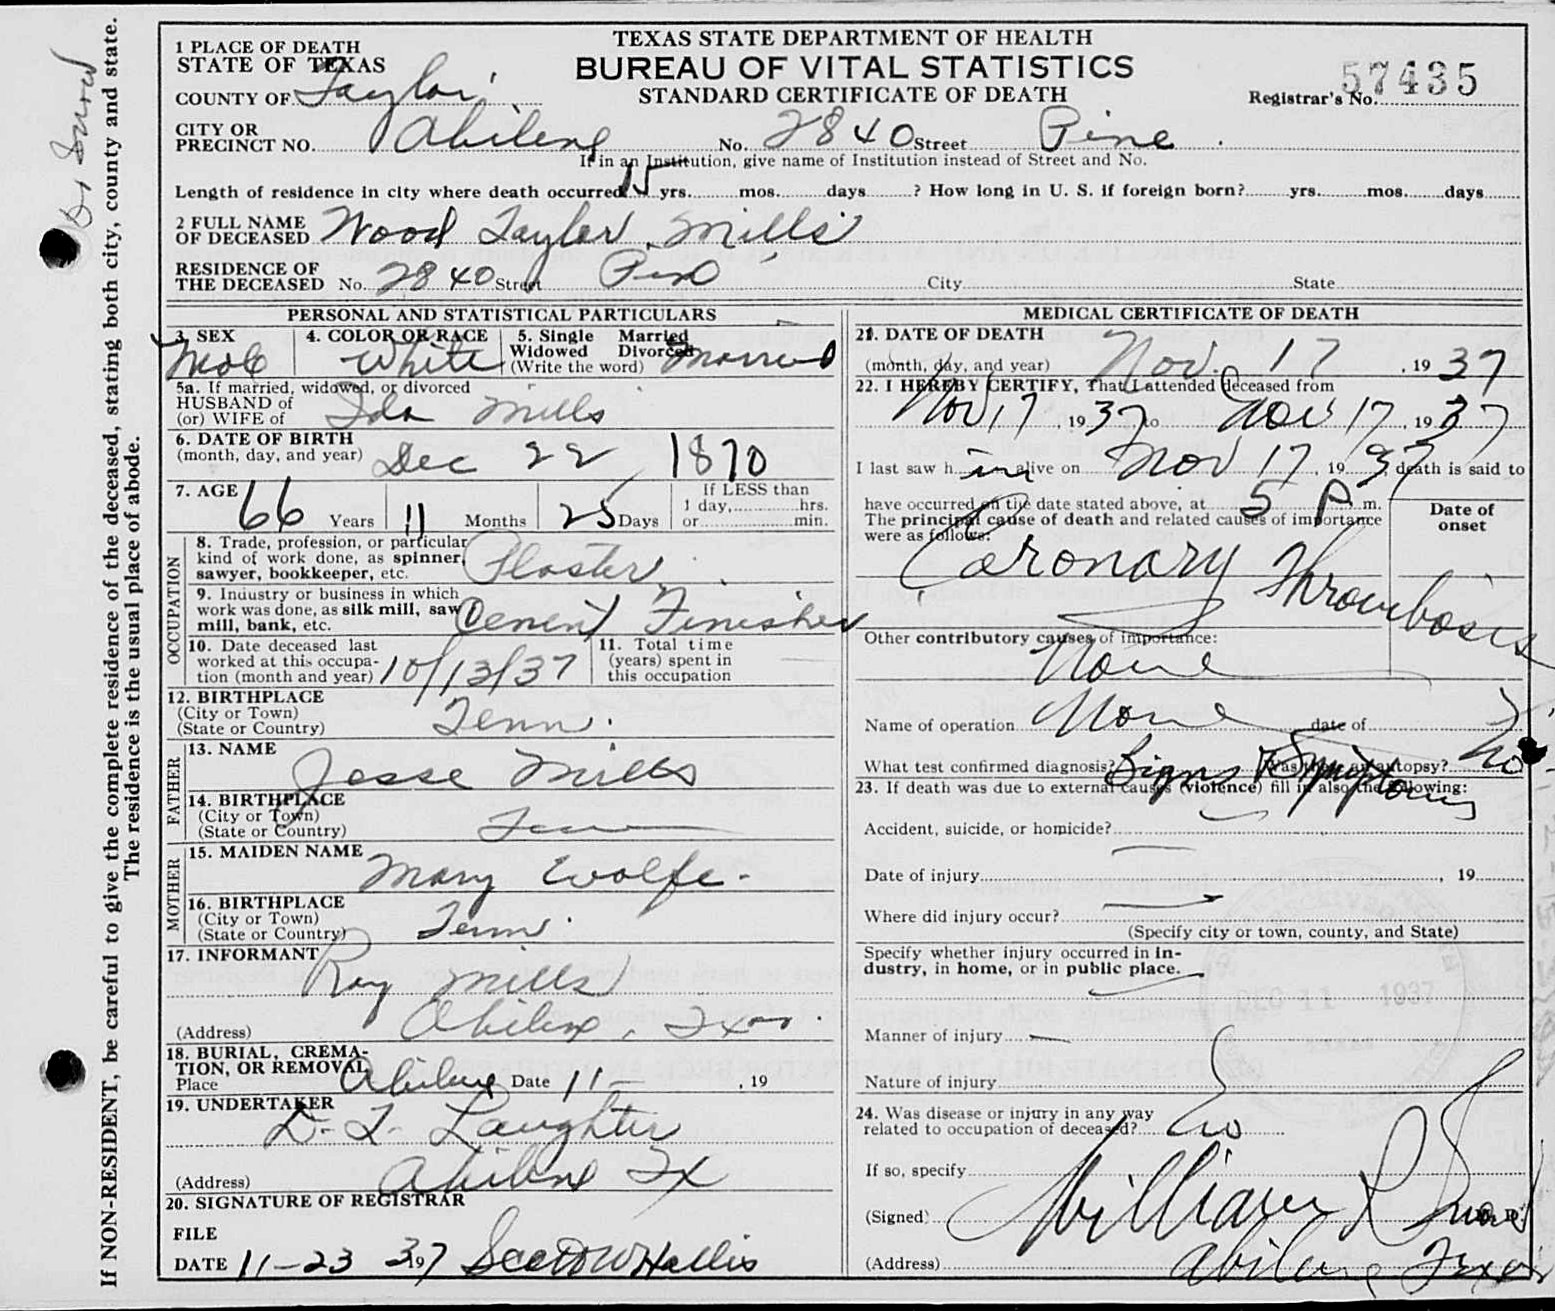 TEXAS STATE DEPARTMENT OF HEALTH
BUREAU OF VITAL STATISTICS
STANDARD CERTIFICATE OF DEATH
1 PLACE OF DEATH
STATE OF TEXAS
COUNTY OF Taylor
Registrar's No. 57435
CITY OR
PRECINCT NO. Abilene No. 2840 Street Pine
If in an Institution, give name of Institution instead of Street and No.
Length of residence in city where death occurred 15 yrs. mos. days ? How long in U. S. if foreign born? yrs. mos. days
2 FULL NAME
OF DECEASED Wood Taylor Mills
RESIDENCE OF
THE DECEASED No. 2840 Street Pine City State
PERSONAL AND STATISTICAL PARTICULARS
3. SEX Male
4. COLOR OR RACE White
5. Single Married
Widowed Divorced
(Write the word) Married
5a. If married, widowed, or divorced
HUSBAND of
(or) WIFE of Ida Mills
6. DATE OF BIRTH
(month, day, and year) Dec 22 1870
7. AGE 66 Years 11 Months 25 Days
If LESS than
1 day, hrs.
or min.
OCCUPATION
8. Trade, profession, or particular
kind of work done, as spinner,
sawyer, bookkeeper, etc. Plaster
9. Industry or business in which
work was done, as silk mill, saw
mill, bank, etc. Cement Finisher
10. Date deceased last
worked at this occupa-
tion (month and year) 10/13/37
11. Total time
(years) spent in
this occupation
12. BIRTHPLACE
(City or Town)
(State or Country) Tenn.
FATHER
13. NAME Jesse Mills
14. BIRTHPLACE
(City or Town)
(State or Country) Tenn
MOTHER
15. MAIDEN NAME Mary Wolfe.
16. BIRTHPLACE
(City or Town)
(State or Country) Tenn.
17. INFORMANT Roy Mills
(Address) Abilene, Texas.
18. BURIAL, CREMA-
TION, OR REMOVAL
Place Abilene Date 11- , 19
19. UNDERTAKER D. L. Laughter
(Address) Abilene Tx
20. SIGNATURE OF REGISTRAR
FILE
DATE 11-23 1937 Scott W Hollis
MEDICAL CERTIFICATE OF DEATH
21. DATE OF DEATH
(month, day, and year) Nov. 17 , 1937
22. I HEREBY CERTIFY, That I attended deceased from
Nov 17 , 1937 to Nov 17 , 1937
I last saw him alive on Nov 17 , 1937 death is said to
have occurred on the date stated above, at 5 P. m.
The principal cause of death and related causes of importance
were as follows:
Date of
onset
Coronary Thrombosis
Other contributory causes of importance:
None
Name of operation None date of
What test confirmed diagnosis? Signs & Symptoms Was there an autopsy? No
23. If death was due to external causes (violence) fill in also the following:
Accident, suicide, or homicide?
Date of injury , 19
Where did injury occur?
(Specify city or town, county, and State)
Specify whether injury occurred in in-
dustry, in home, or in public place.
DEC 11 1937
Manner of injury
Nature of injury
24. Was disease or injury in any way
related to occupation of deceased? No
If so, specify
(Signed) William R Snow M. D.
(Address) Abilene Texas
If NON-RESIDENT, be careful to give the complete residence of the deceased, stating both city, county and state.
The residence is the usual place of abode.
Dr Snow